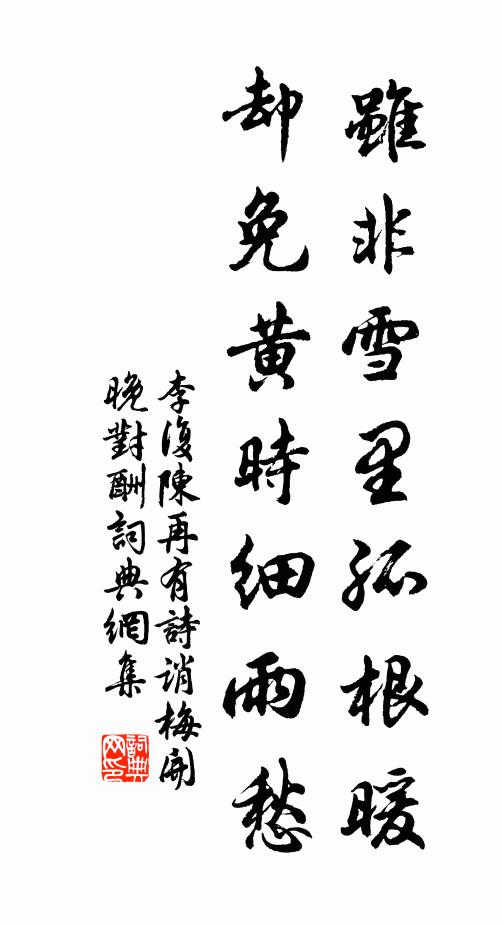 雖非雪里孤根暖
却免黃時細雨愁
李復陳再有詩誚梅開
晚對酬詞典網集
詞典
网印